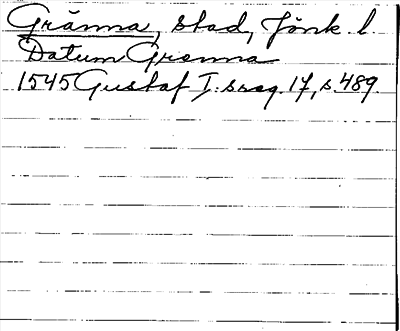 Gränna, stad, Jönk. l.
Datum Grenna
1545 Gustaf I:s reg. 17, s. 489.